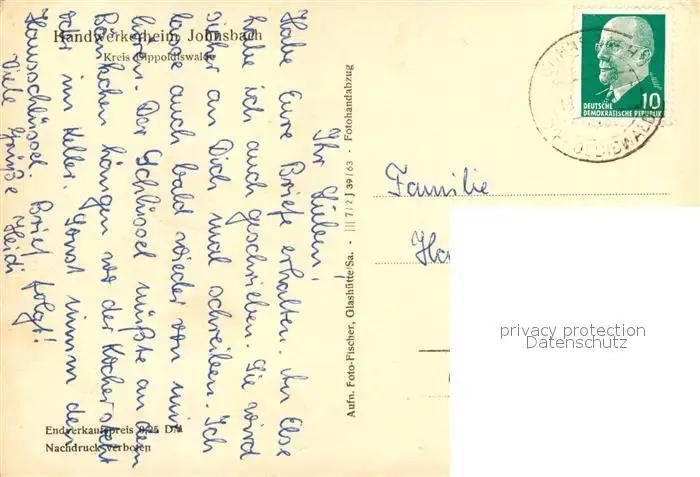 Handwerkerheim Johnsbach
Kreis Dippoldiswalde
Ihr Lieben!
Habe Eure Briefe erhalten. An Else
habe ich auch geschrieben. Sie wird
sicher an Dich mal schreiben. Ich
lasse auch bald wieder von mir
hören. Der Schlüssel müßte an dem
Bänkchen hängen wo der Kocher steht
oder im Keller. Sonst nimm den
Hausschlüssel. Brief folgt!
Viele Grüße Heidi
Endverkaufspreis 0,25 DM
Nachdruck verboten
Aufn. Foto-Fischer, Glashütte/Sa. - III 7/2 J 39/63 - Fotohandabzug
DEUTSCHE
DEMOKRATISCHE REPUBLIK
10
Familie
privacy protection
Datenschutz